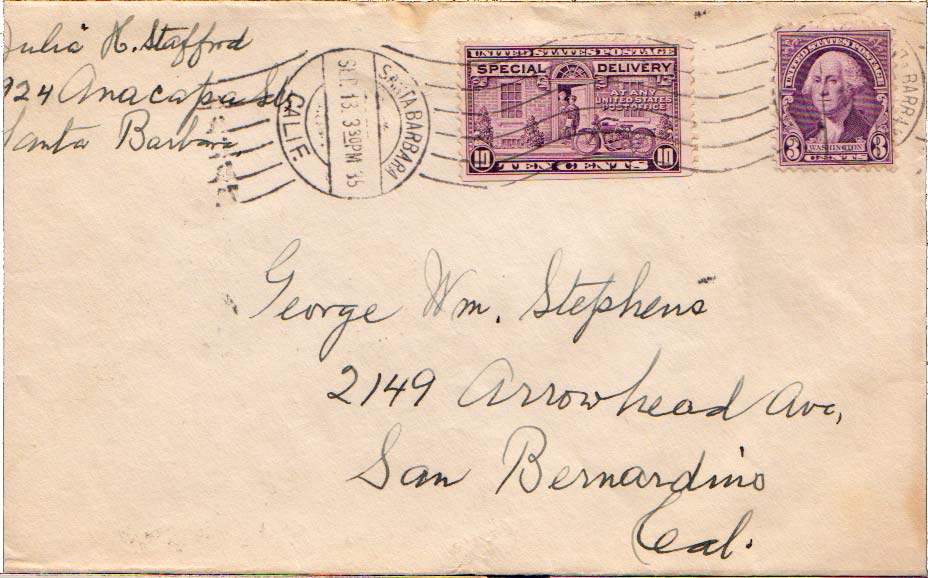 Julia H. Stafford
924 Anacapa St.
Santa Barbara
SANTA BARBARA
SEP 13 330PM 35
CALIF.
UNITED STATES POSTAGE
SPECIAL DELIVERY
AT ANY
UNITED STATES
POST OFFICE
10 TEN CENTS 10
UNITED STATES POSTAGE
WASHINGTON
3 CENTS 3
George Wm. Stephens
2149 Arrowhead Ave,
San Bernardino
Cal.